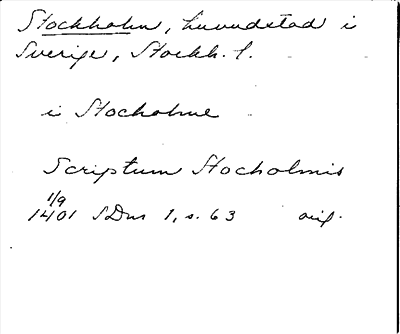 Stockholm, huvudstad i
Sverige, Stockh. l.
i Stocholme
Scriptum Stocholmis
1/9
1401 SDns 1, s. 63 orig.